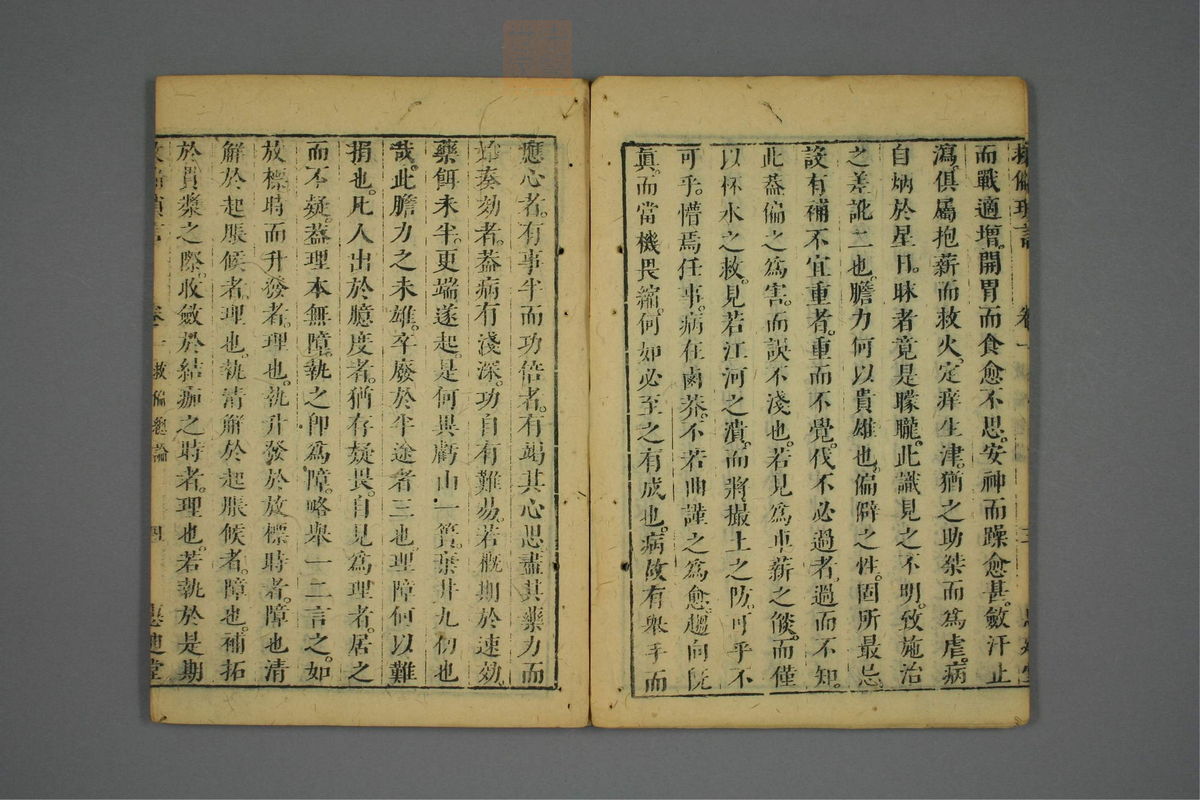 救偏瑣言 卷一 三
而戰適增。開胃而食愈不思。安神而躁愈甚。斂汗止
瀉。俱屬抱薪而救火。定痒生津。猶之助桀而為虐。病
自炳於星日。昧者竟是矇矓。此識見之不明。致施治
之差訛二也。膽力何以貴雄也。偏僻之性。固所最忌。
設有補不宜重者。重而不覺。伐不必過者。過而不知。
此葢偏之為害。而誤不淺也。若見為車薪之燄。而僅
以杯水之救。見若江河之潰。而將撮土之防。可乎不
可乎。懵焉任事。病在鹵莽。不若曲謹之為愈。趨向旣
眞。而當機畏縮。何如必至之有成也。病故有舉手而
應心者。有事半而功倍者。有竭其心思盡其藥力而
始奏効者。葢病有淺深。功自有難易。若槪期於速効。
藥餌未半。更端遂起。是何異虧山一簣。棄井九仞也
哉。此膽力之未雄。卒廢於半途者三也。理障何以難
捐也。凡人出於臆度者。猶存疑畏。自見為理者。居之
而不疑。葢理本無障。執之卽為障。略舉一二言之。如
放標時而升發者。理也。執升發於放標時者。障也清
解於起脹候者。理也。執清解於起脹候者。障也。補拓
於貫漿之際。收斂於結痂之時者。理也。若執於是期
救偏瑣言 卷一 救偏總論 四 惠迪堂